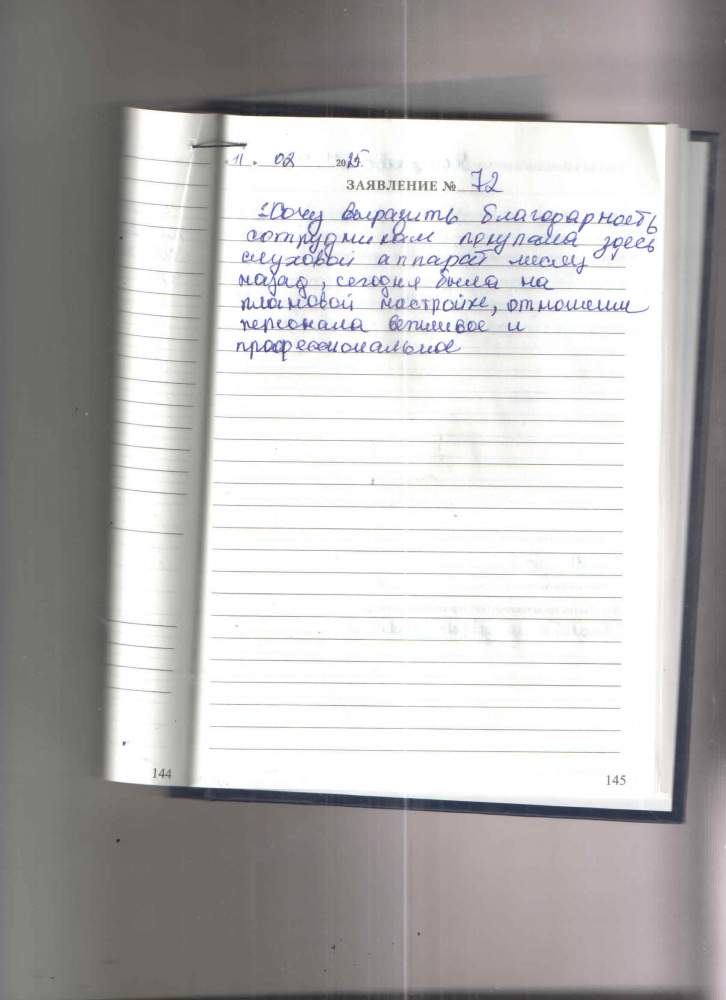 „11 " 02 2025г.
ЗАЯВЛЕНИЕ № 72
Хочу выразить благодарность
сотрудникам покупала здесь
слуховой аппарат месяц
назад, сегодня была на
плановой настройке, отношении
персонала вежливое и
профессиональное
144
145